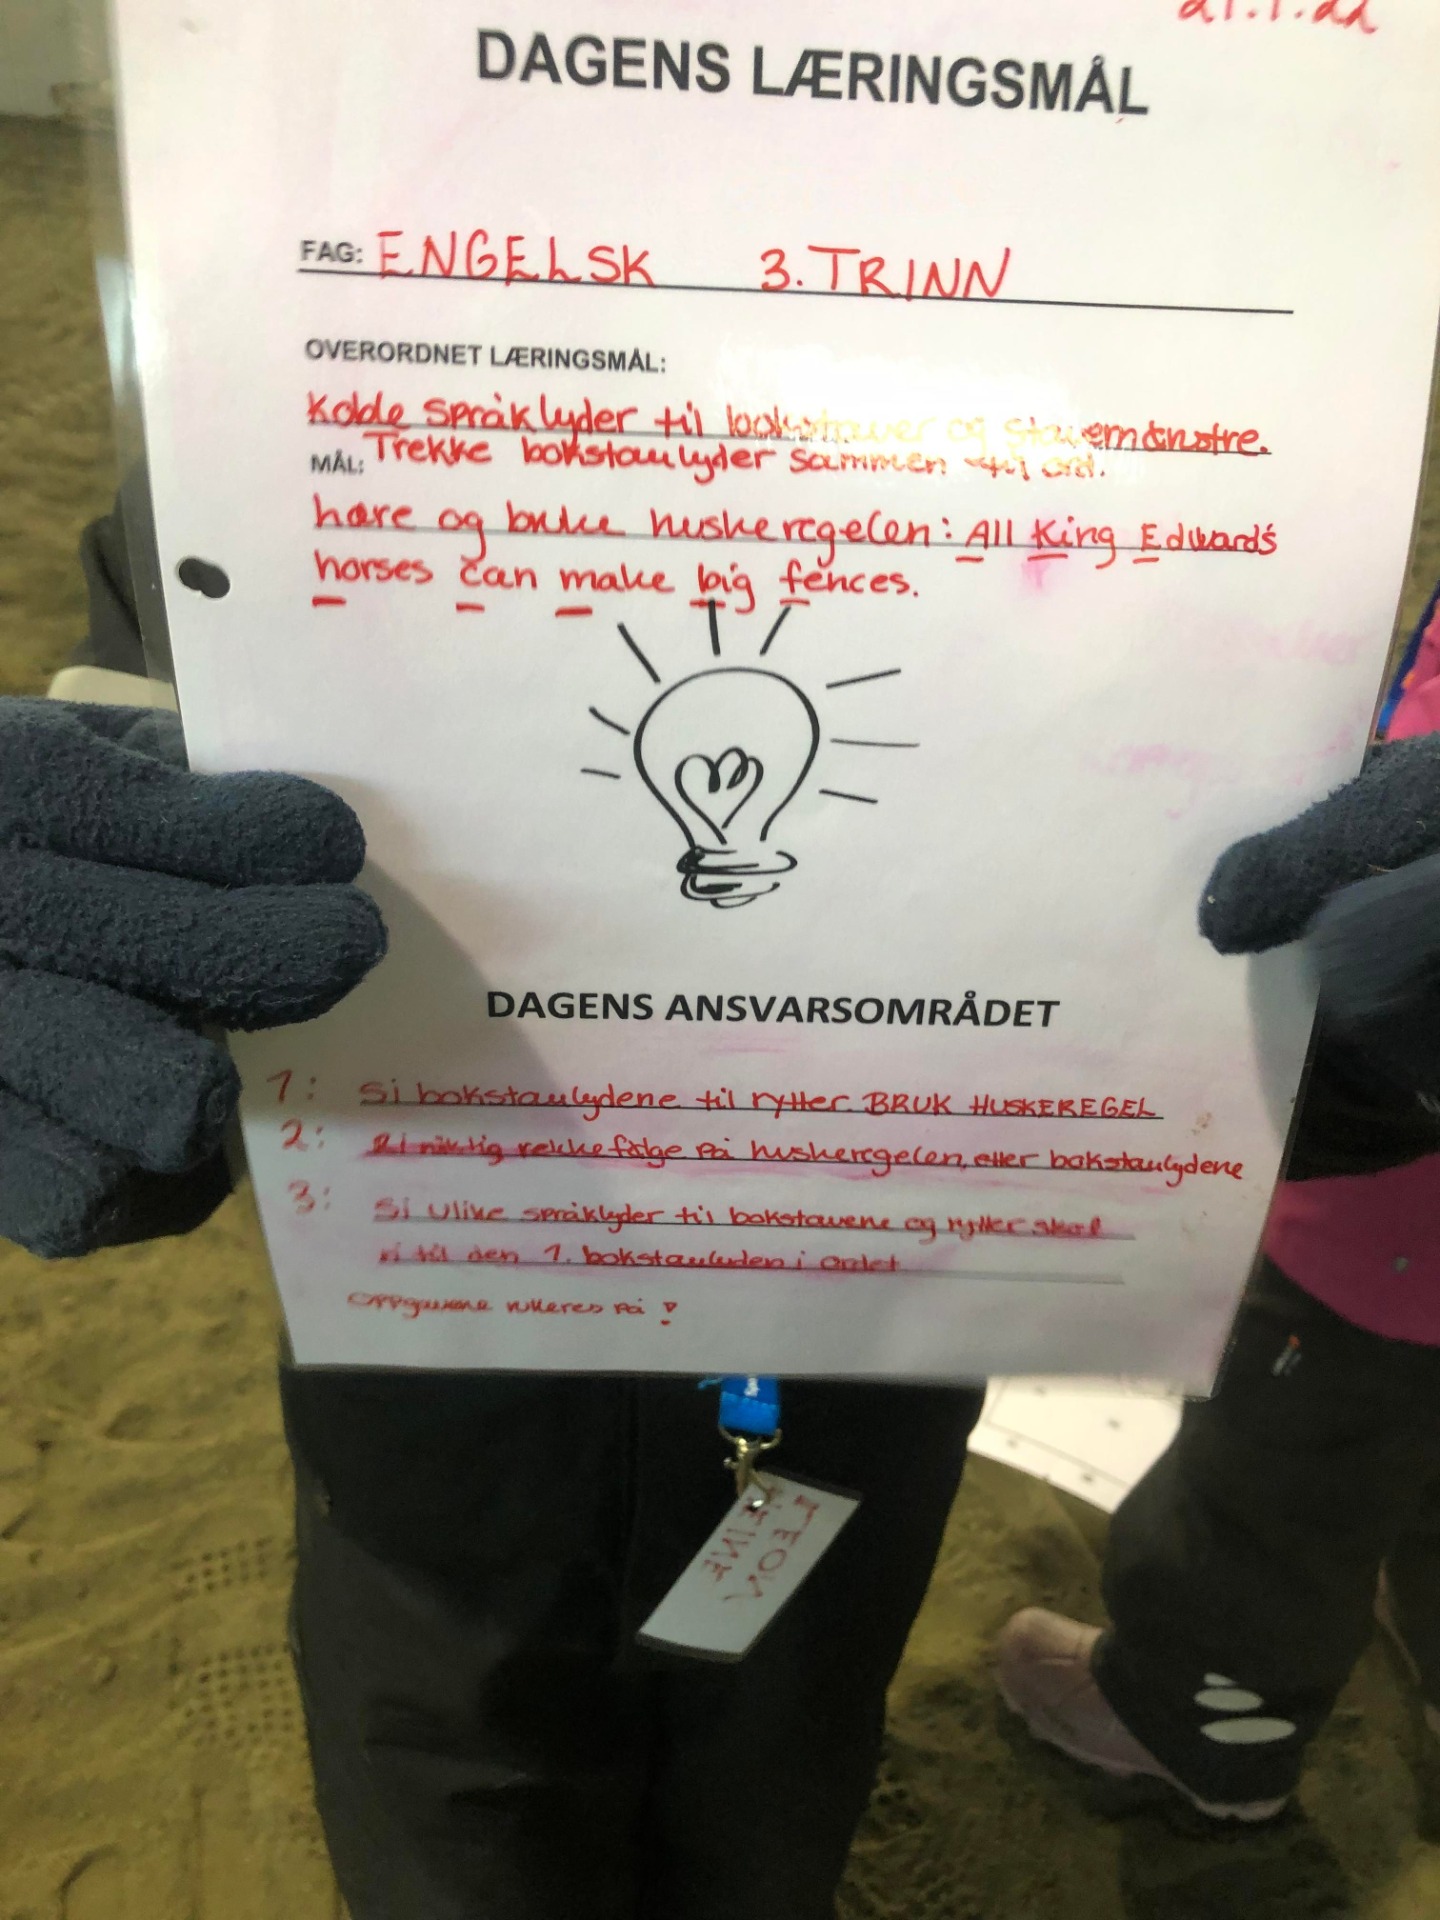 21.1.22
DAGENS LÆRINGSMÅL
FAG: ENGELSK 3. TRINN
OVERORDNET LÆRINGSMÅL:
Koble språklyder til bokstaver og stavemønstre.
MÅL: Trekke bokstavlyder sammen til ord.
høre og bruke huskeregelen: All King Edward's
horses can make big fences.
DAGENS ANSVARSOMRÅDET
1: Si bokstavlydene til rytter. BRUK HUSKEREGEL
2: riktig rekkefølge på huskeregelen, etter bokstavlydene
3: Si ulike språklyder til bokstavene og rytter skal
ri til den 1. bokstavlyden i ordet
Oppgavene rulleres på !
LEON
HEINE